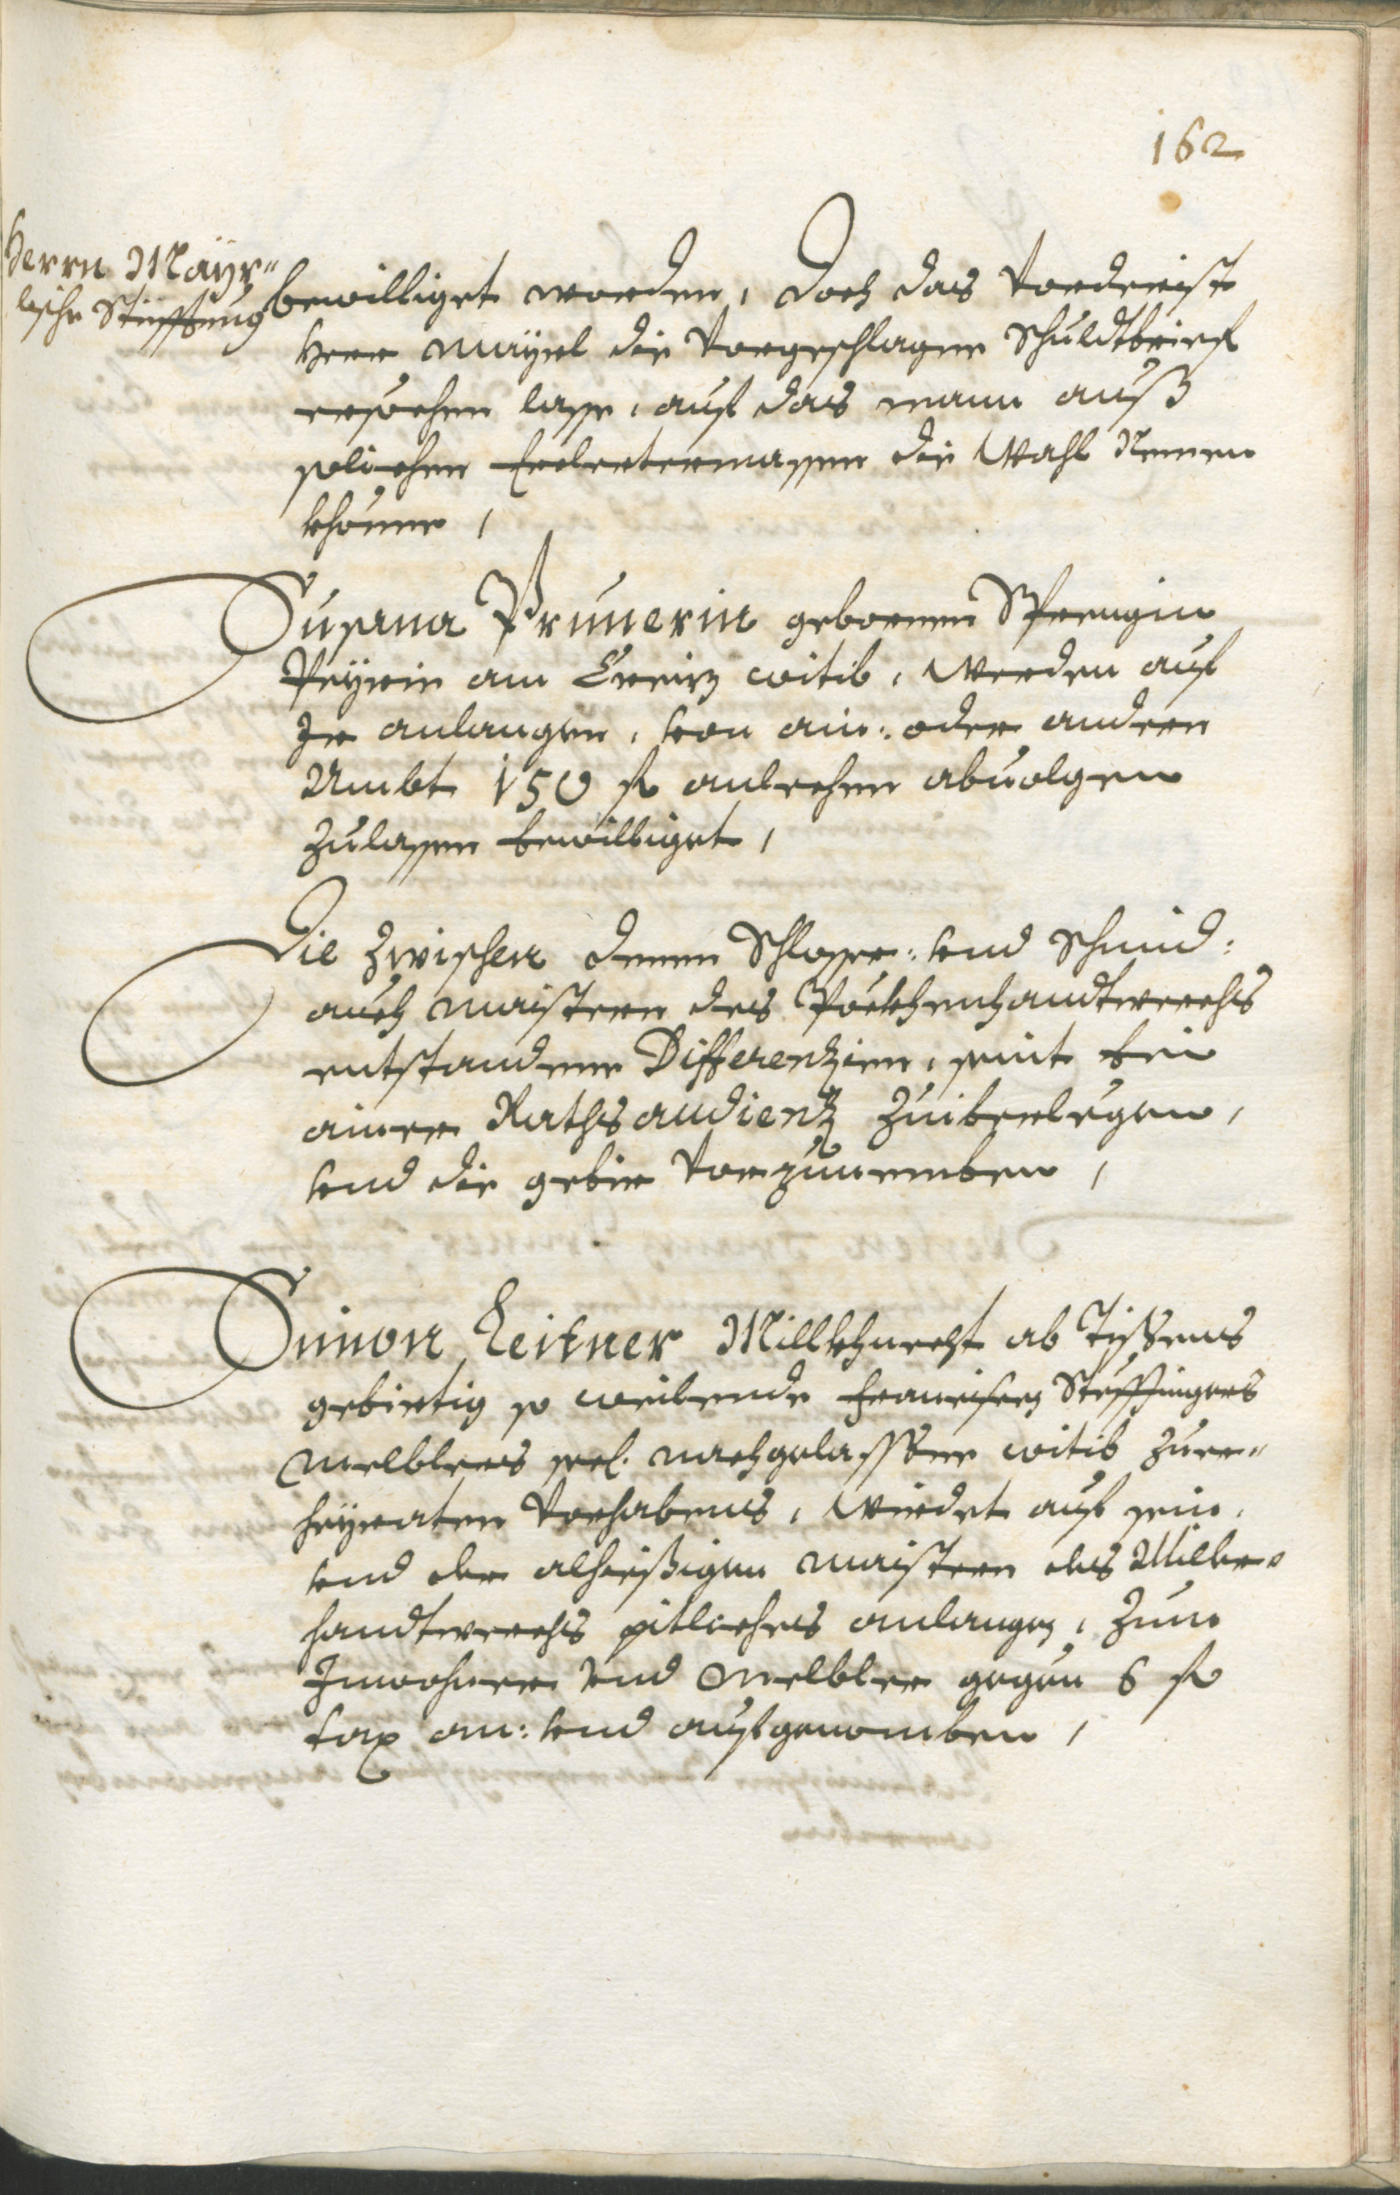 162
Herrn Mayr-
lische Stüfftung
bewilliget worden, doch das vorderist
Herr Mayrl die vorgeschlagne Schuldtbrief
ersechen lasse, auf das mann auß
solichen erdeitermassen die Wahl Nemen
khönne,
Susanna Prunerin gebornen Sprengin
Peyrin am Creiz witib, werden auf
Ir anlangen, von ain: oder andern
Ambt 150 fl anlechen abuolgen
zulassen bewilliget,
Die zwischen denen Schlosser: und Schmid:
auch maistern des Pöckhenhandtwerchs
entstandene Differenzien, seint bei
ainer Rathsaudienz zuiberlegen,
und die gebir vorzunemben,
Simon Leitner Millkhnecht ab Tissens
gebirtig so weilende Francisen Steffingers
Melblers sel. nachgelassne witib zuer-
heyraten vorhabens, wirdet auf sein,
und der alhießigen maistern des Miller-
handtwerchs pitliches anlangen, zum
Inwohner und Melbler gegen 6 fl
tax an: und aufgenomben,